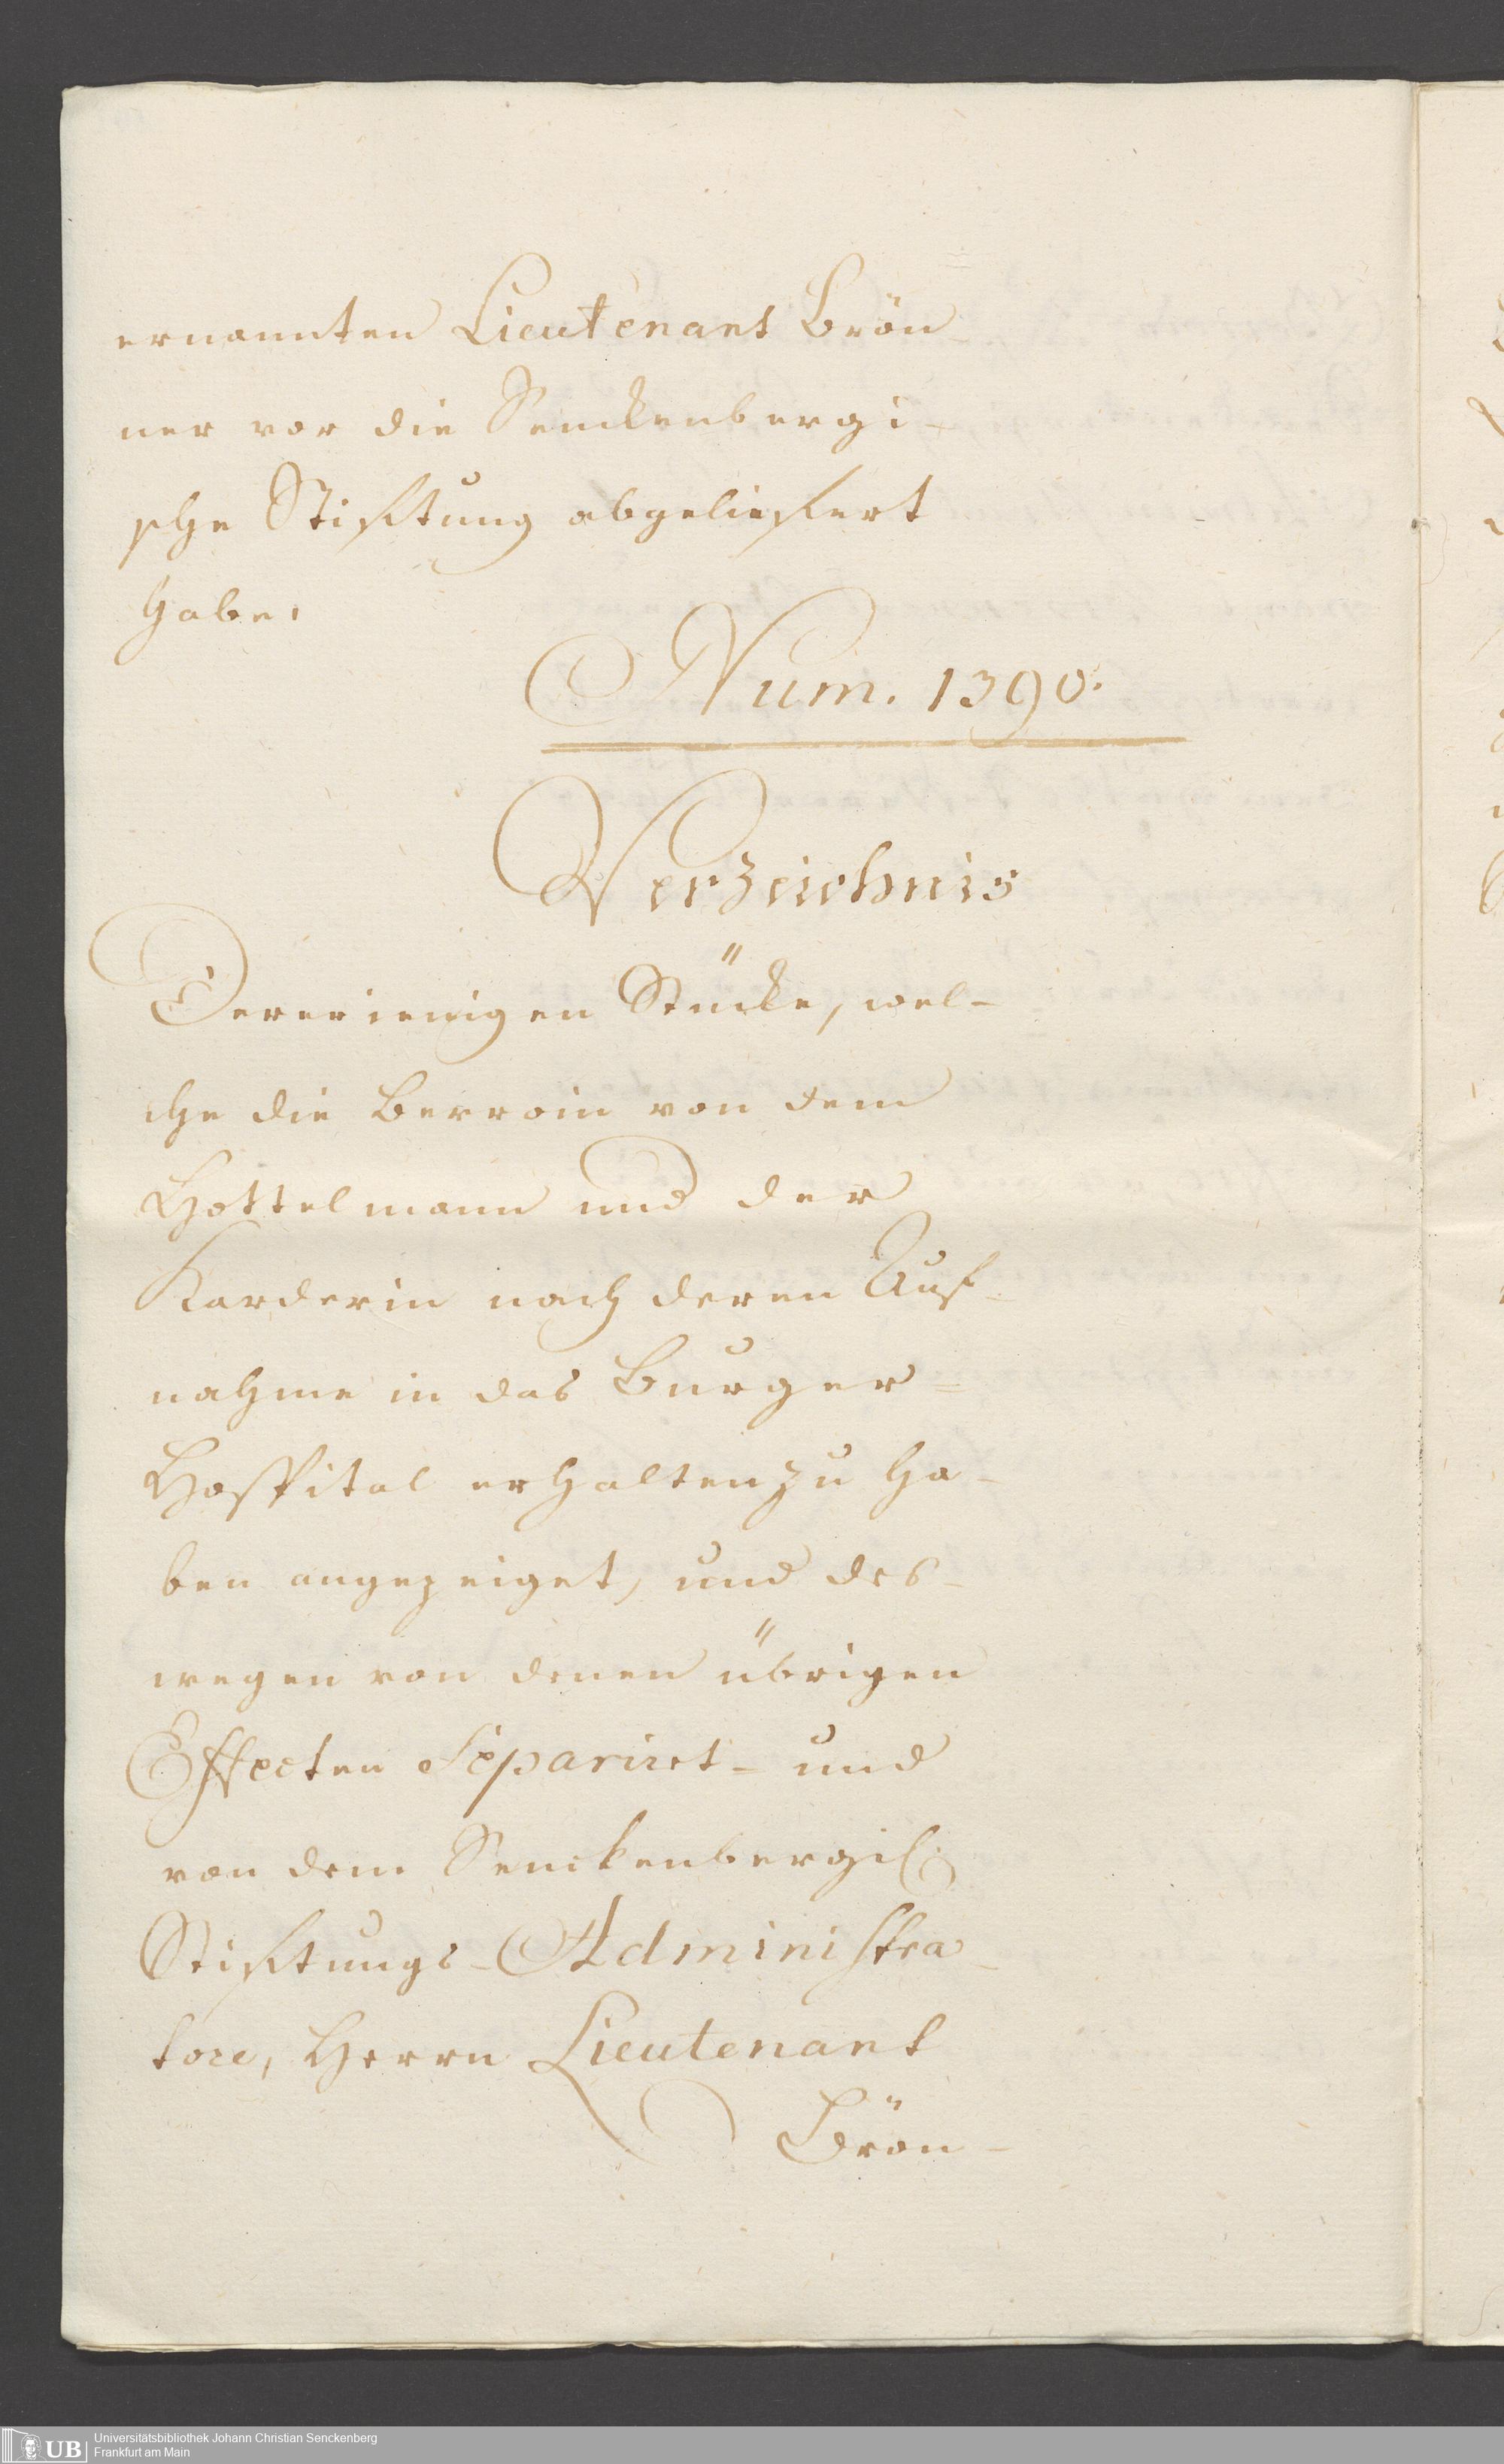 ernannten Lieutenant Brön-
ner vor die Senckenbergi-
sche Stifftung abgelieffert
habe.
Num. 1390.
Verzeichnis
Dererienigen Stücke, wel-
che die Berroin von dem
Hottelmann und der
Karderin nach deren Auf-
nahme in das Burger-
Hospital erhalten zu ha-
ben angezeiget, und des-
wegen von denen übrigen
Effecten separiret- und
von dem Senckenbergis.
Stifftungs-Administra-
tore, Herrn Lieutenant
Brön-
UB
Universitätsbibliothek Johann Christian Senckenberg
Frankfurt am Main